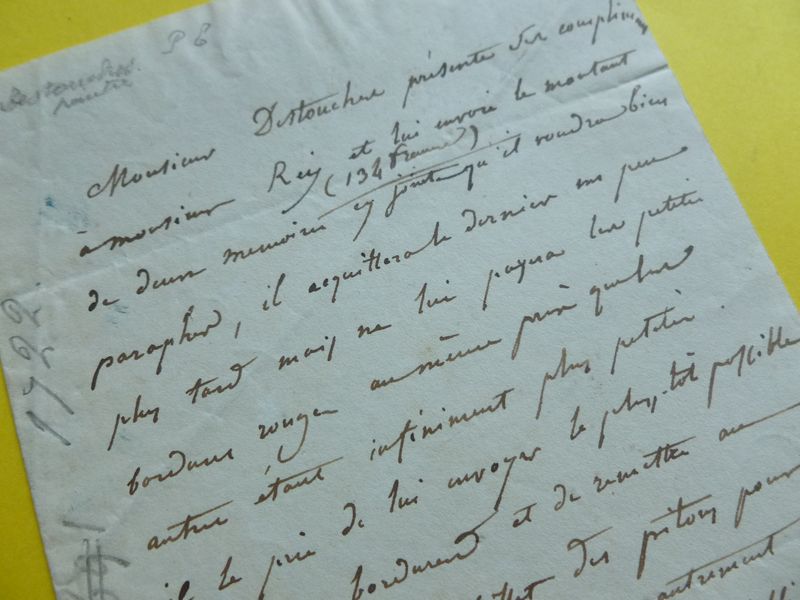 Destouches
peintre
P E
Monsieur Destouches présente ses complimens
à monsieur Rey et lui envoie le montant
(134 francs)
de deux memoires cy joints qu'il voudra bien
parapher, il acquittera le dernier un peu
plus tard mais ne lui payera les petites
bordures rouges au même prix que les
autres étant infiniment plus petites.
il le prie de lui envoyer le plus tôt possible
bordures et de remettre au
des pitons pour
autrement
1922.